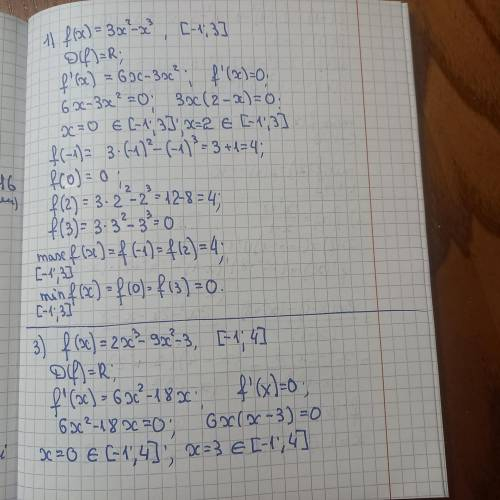 1) f(x) = 3x²-x³, [-1;3]
D(f)=R;
f'(x) = 6x-3x²; f'(x)=0;
6x-3x²=0; 3x(2-x)=0;
x=0 ∈ [-1;3]; x=2 ∈ [-1;3]
f(-1)= 3·(-1)²-(-1)³=3+1=4;
f(0)=0;
f(2)=3·2²-2³=12-8=4;
f(3)=3·3²-3³=0
max f(x)=f(-1)=f(2)=4;
[-1;3]
min f(x)=f(0)=f(3)=0.
[-1;3]
3) f(x)=2x³-9x²-3, [-1;4]
D(f)=R;
f'(x)=6x²-18x; f'(x)=0;
6x²-18x=0; 6x(x-3)=0
x=0 ∈ [-1;4]; x=3 ∈ [-1;4]
16